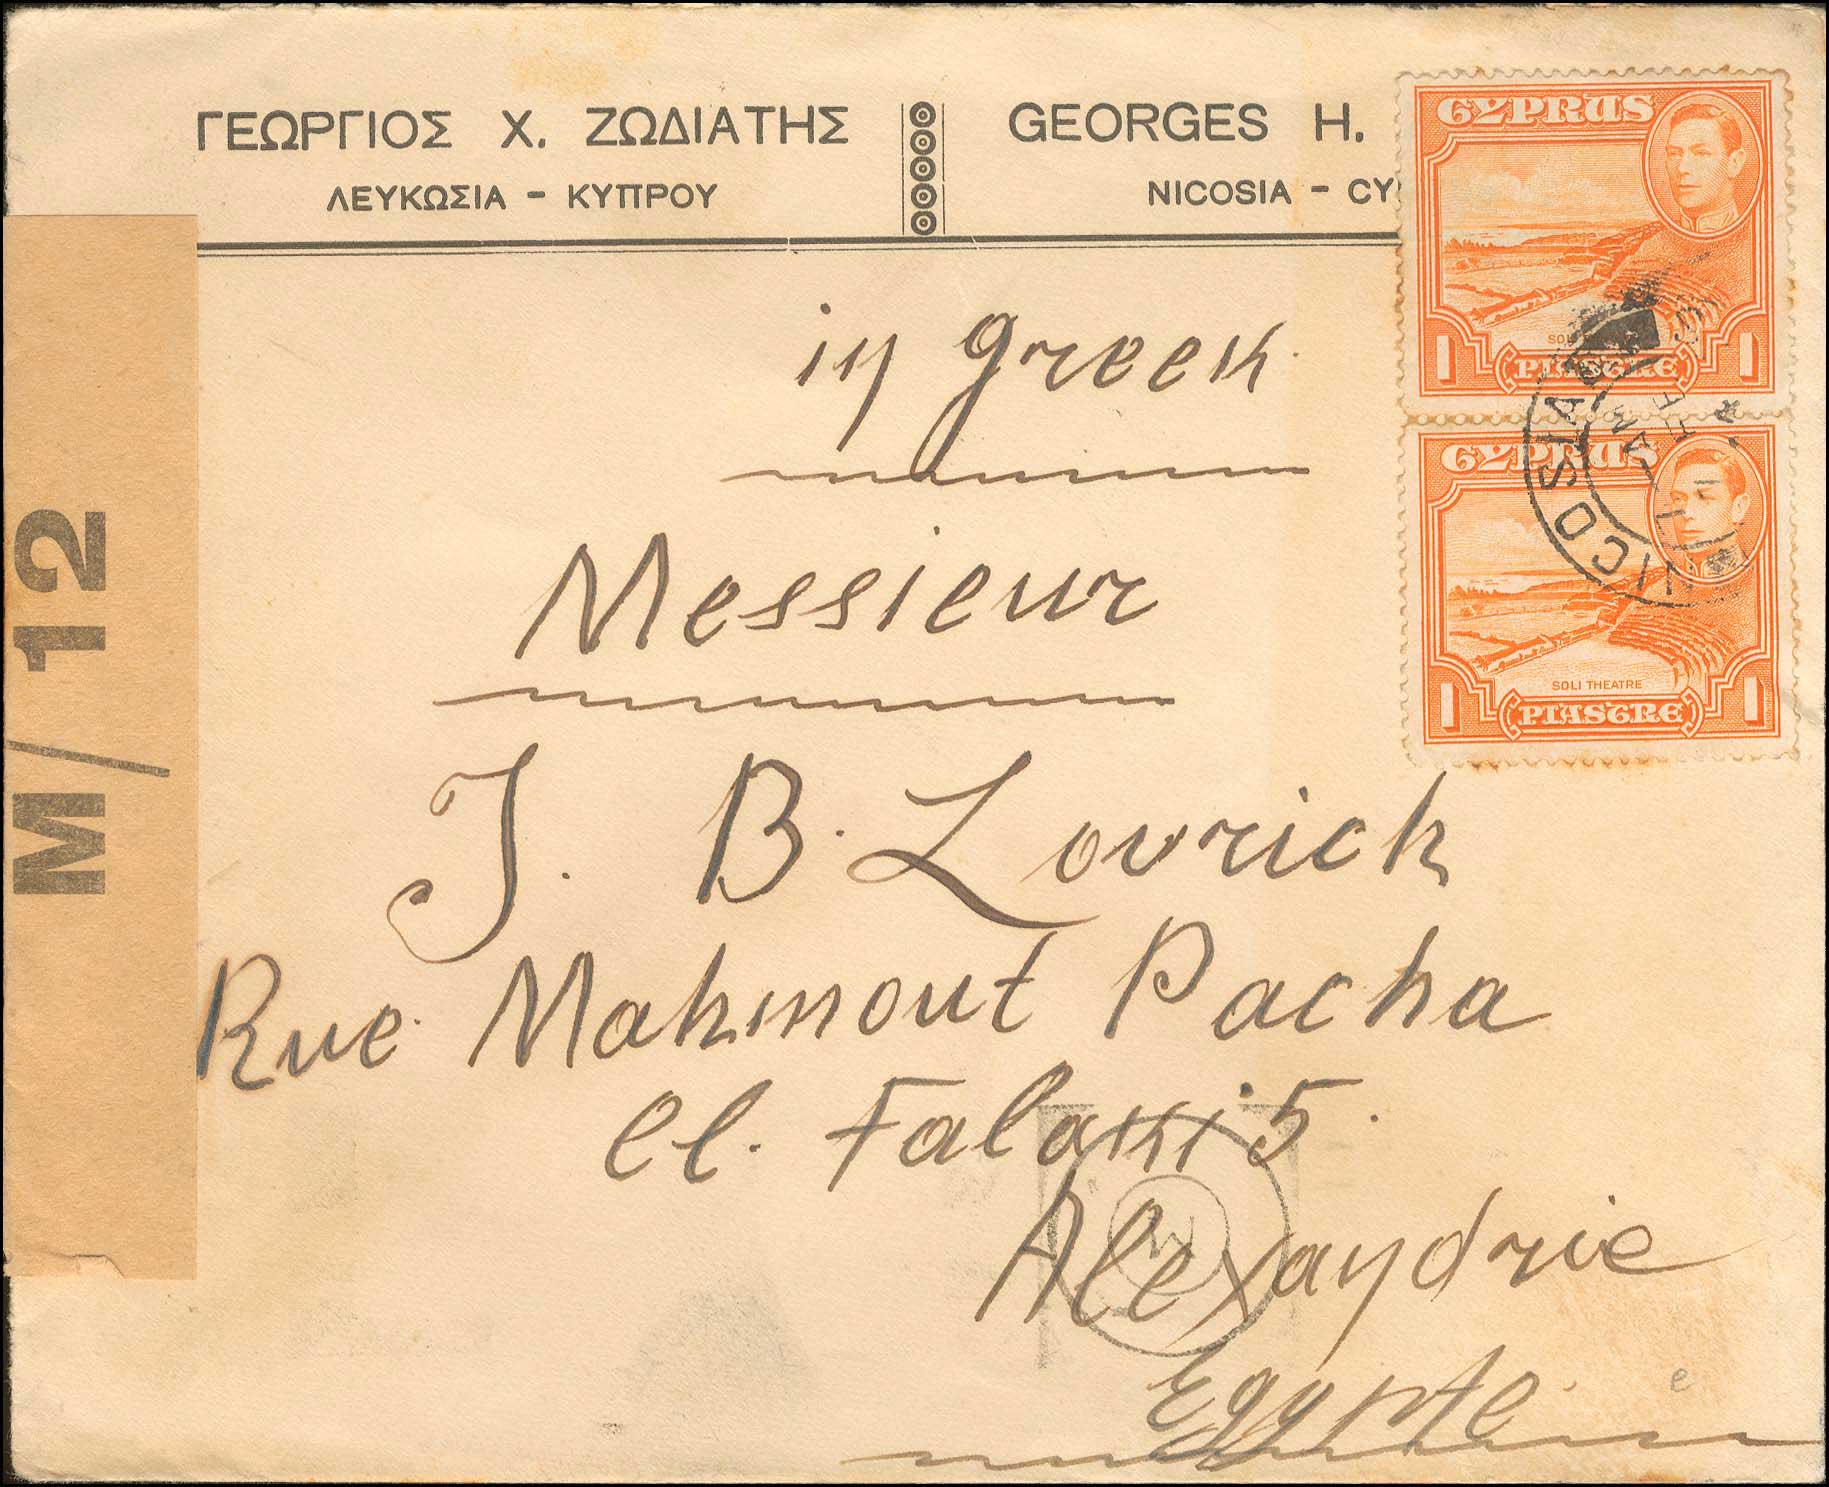 ΓΕΩΡΓΙΟΣ Χ. ΖΩΔΙΑΤΗΣ
ΛΕΥΚΩΣΙΑ - ΚΥΠΡΟΥ
GEORGES H.
NICOSIA - CY
CYPRUS
SOL
1 PIASTRE 1
CYPRUS
SOLI THEATRE
1 PIASTRE 1
NICOSIA
AM
M/12
in greek
Messieur
J. B. Lovrich
Rue Mahmout Pacha
el. Falaki 5.
Alexandrie
Egypte
e